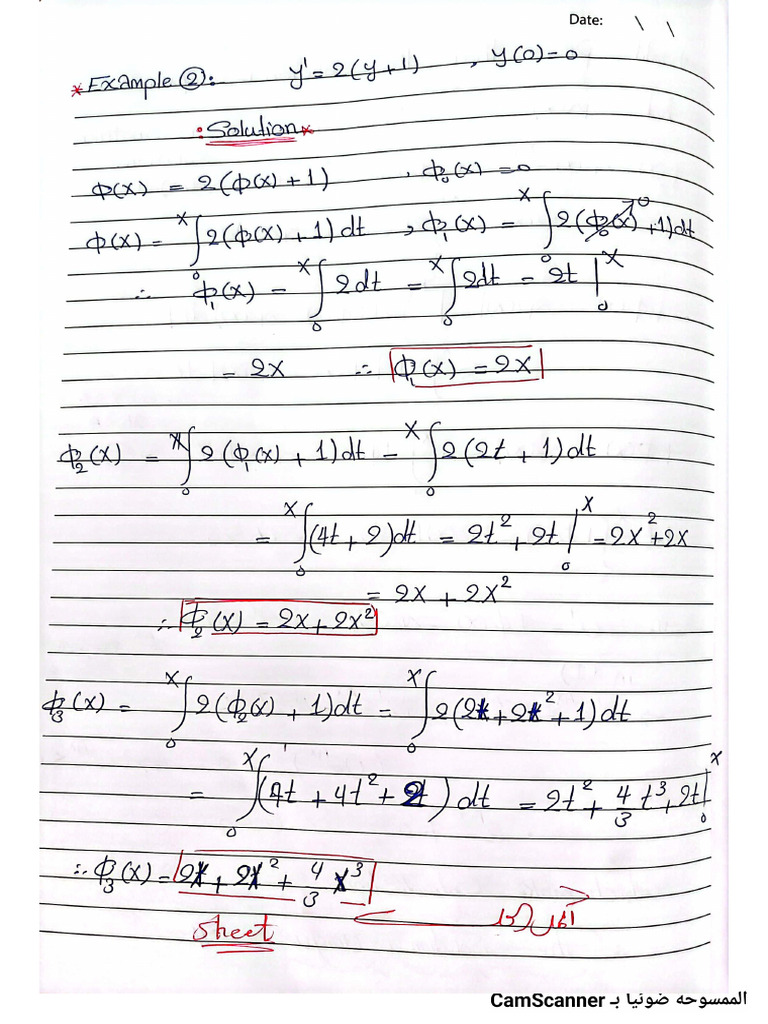 Date: \ \
* Example ②: y' = 2(y+1) , y(0)=0
: Solution *
Φ(x) = 2(Φ(x)+1) , Φ₀(x) = 0
Φ(x) = ∫₀ˣ 2(Φ(x)+1)dt , Φ₁(x) = ∫₀ˣ 2(Φ₀(x)→0 +1)dt
∴ Φ₁(x) = ∫₀ˣ 2dt = ∫₀ˣ 2dt = 2t |₀ˣ
= 2x ∴ Φ₁(x) = 2x
Φ₂(x) = ∫₀ˣ 2(Φ₁(x)+1)dt = ∫₀ˣ 2(2t+1)dt
= ∫₀ˣ (4t+2)dt = 2t²+2t |₀ˣ = 2x²+2x
= 2x + 2x²
∴ Φ₂(x) = 2x+2x²
Φ₃(x) = ∫₀ˣ 2(Φ₂(x)+1)dt = ∫₀ˣ 2(2t+2t²+1)dt
= ∫₀ˣ (4t+4t²+2)dt = 2t²+4/3 t³+2t |₀ˣ
∴ Φ₃(x) = 2x+2x²+4/3 x³
sheet
الممسوحة ضوئيا بـ CamScanner